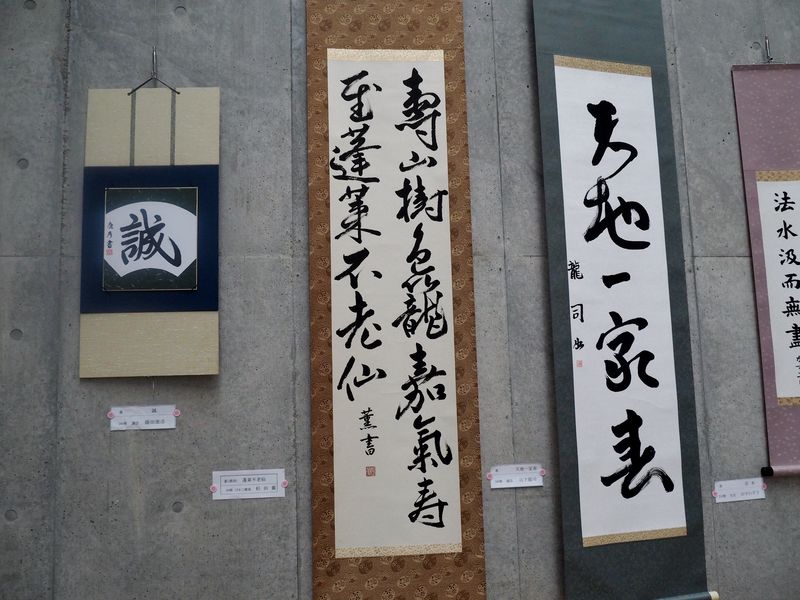 誠
誠
壽山樹色籠嘉氣寿
至蓬莱不老仙
薫書
蓬莱不老仙
天地一家春
龍司書
天地一家春
山下龍司
法水汲而無盡